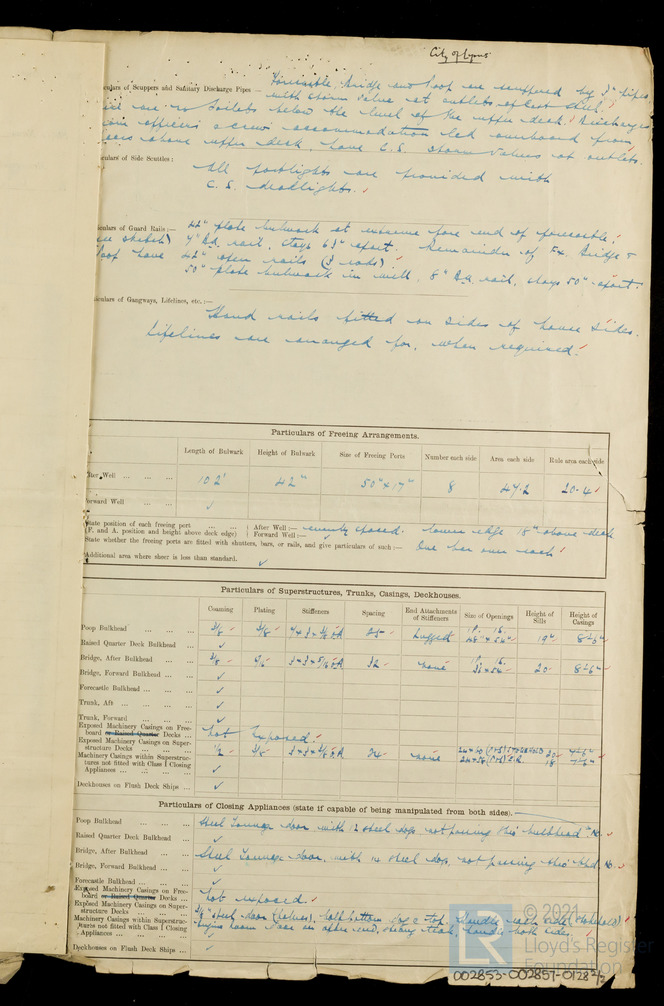 City of Lyons
culars of Scuppers and Sanitary Discharge Pipes — Forecastle, Bridge and Poop are scuppered by 3" pipes
with storm valve at outlets of cast steel.
are no toilets below the level of the upper deck. Discharges
officers & crew accommodation led overboard from
above upper deck, have C.S. storm valves at outlets.
culars of Side Scuttles :
All portlights are provided with
C.S. deadlights.
culars of Guard Rails :— 42" plate bulwark at extreme fore end of forecastle,
see sketch) rail, stays apart. Remainder of Fx, Bridge &
Poop have 42" open rails (3 rods)
50" plate bulwark in well, 8" rail, stays 50" apart.
culars of Gangways, Lifelines, etc. :—
Hand rails fitted on sides of house sides.
Lifelines are arranged for, when required.
Particulars of Freeing Arrangements.
Length of Bulwark Height of Bulwark Size of Freeing Ports Number each side Area each side Rule area each side
After Well ... ... ... 102' 42" 50" x 17" 8 47.2 20.4
Forward Well ... ...
State position of each freeing port ... ... After Well :— evenly spaced. lower edge 18" above deck
(F. and A. position and height above deck edge) Forward Well :—
State whether the freeing ports are fitted with shutters, bars, or rails, and give particulars of such :— One bar over each
Additional area where sheer is less than standard.
Particulars of Superstructures, Trunks, Casings, Deckhouses.
Coaming Plating Stiffeners Spacing End Attachments of Stiffeners Size of Openings Height of Sills Height of Casings
Poop Bulkhead ... ... ... 3/8 3/8 25 Lugged 19"
Raised Quarter Deck Bulkhead ...
Bridge, After Bulkhead ... ... 3/8 32 none 20
Bridge, Forward Bulkhead ...
Forecastle Bulkhead ... ...
Trunk, Aft ... ... ...
Trunk, Forward ... ... ...
Exposed Machinery Casings on Free-
board or Raised Quarter Decks ... Not Exposed
Exposed Machinery Casings on Super-
structure Decks ... ... 1/2 3/8 24 none
Machinery Casings within Superstruc-
tures not fitted with Class I Closing
Appliances ... ... ...
Deckhouses on Flush Deck Ships ...
Particulars of Closing Appliances (state if capable of being manipulated from both sides).
Poop Bulkhead ... ... ... Steel Tonnage door with 12 steel dogs not passing thro' bulkhead No.
Raised Quarter Deck Bulkhead ...
Bridge, After Bulkhead ... ... Steel Tonnage door, with 12 steel dogs, not passing thro' bhd, No.
Bridge, Forward Bulkhead ...
Forecastle Bulkhead ... ...
Exposed Machinery Casings on Free-
board or Raised Quarter Decks ... Not exposed.
Exposed Machinery Casings on Super-
structure Decks ... ... steel door half bottom & top. Handle each side
Machinery Casings within Superstruc-
tures not fitted with Class I Closing
Appliances ... ... Engine room door on after end, strong teak, handle both sides.
Deckhouses on Flush Deck Ships ...
© 2021
LR
Lloyd's Register
Foundation
002853-002857-0128 2/2